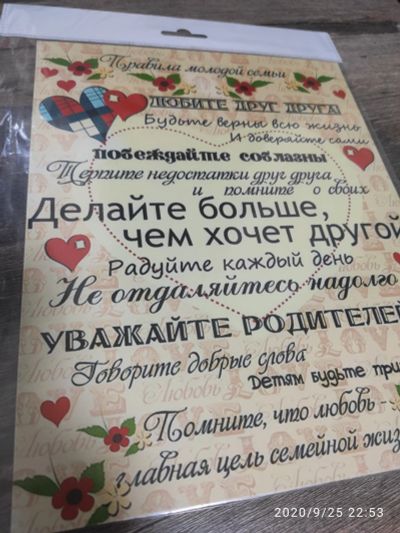 Правила молодой семьи
ЛЮБИТЕ ДРУГ ДРУГА
Будьте верны всю жизнь
И доверяйте сами
ПОБЕЖДАЙТЕ СОБЛАЗНЫ
Терпите недостатки друг друга
и помните о своих
Делайте больше,
чем хочет другой
Радуйте каждый день
Не отдаляйтесь надолго
УВАЖАЙТЕ РОДИТЕЛЕЙ
Говорите добрые слова
Детям будьте
Помните, что любовь -
главная цель семейной
2020/9/25 22:53